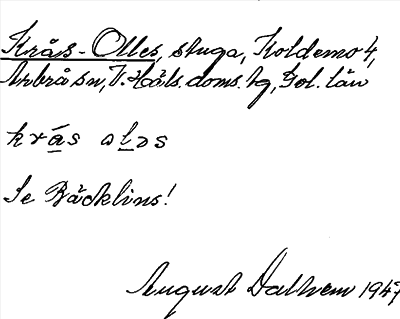 Krås-Olles, stuga, Koldemo 4,
Arbrå sn, V. Häls. doms. hg, Gbl. län
krás olos
Se Bäcklins!
August Dalhem 1947